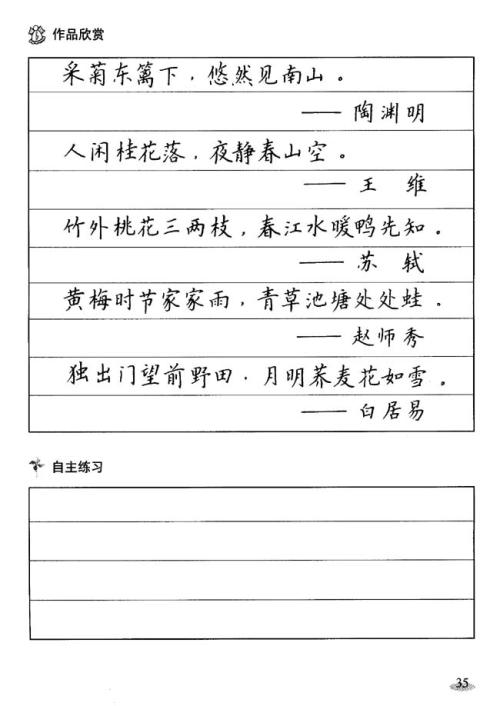 作品欣赏
采菊东篱下，悠然见南山。
—— 陶渊明
人闲桂花落，夜静春山空。
—— 王 维
竹外桃花三两枝，春江水暖鸭先知。
—— 苏 轼
黄梅时节家家雨，青草池塘处处蛙。
—— 赵师秀
独出门望前野田，月明荞麦花如雪。
—— 白居易
自主练习
35